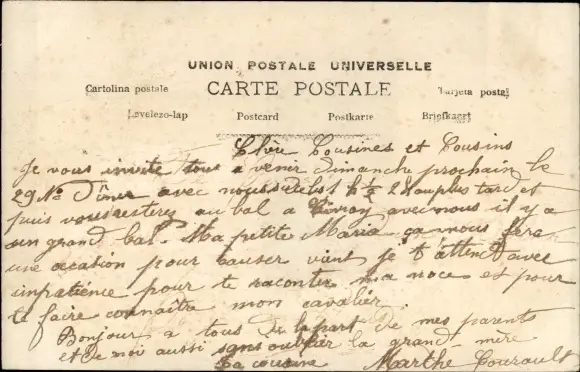 UNION POSTALE UNIVERSELLE
Cartolina postale CARTE POSTALE Tarjeta postal
Levelezo-lap Postcard Postkarte Briefkaart
Chère Cousines et Cousins
Je vous invite tous a venir dimanche prochain le
29 Nº Dîner avec nous 2 h au plus tard et
puis vous resterez au bal a Civray avec nous il y a
un grand bal. Ma petite Maria ça nous fera
une ocation pour causer vient je t'attend avec
impatience pour te raconter ma noce et pour
te faire connaître mon cavalier.
Bonjour a tous de la part de mes parents
et de moi aussi sans oublier la grand-mère
ta cousine Marthe